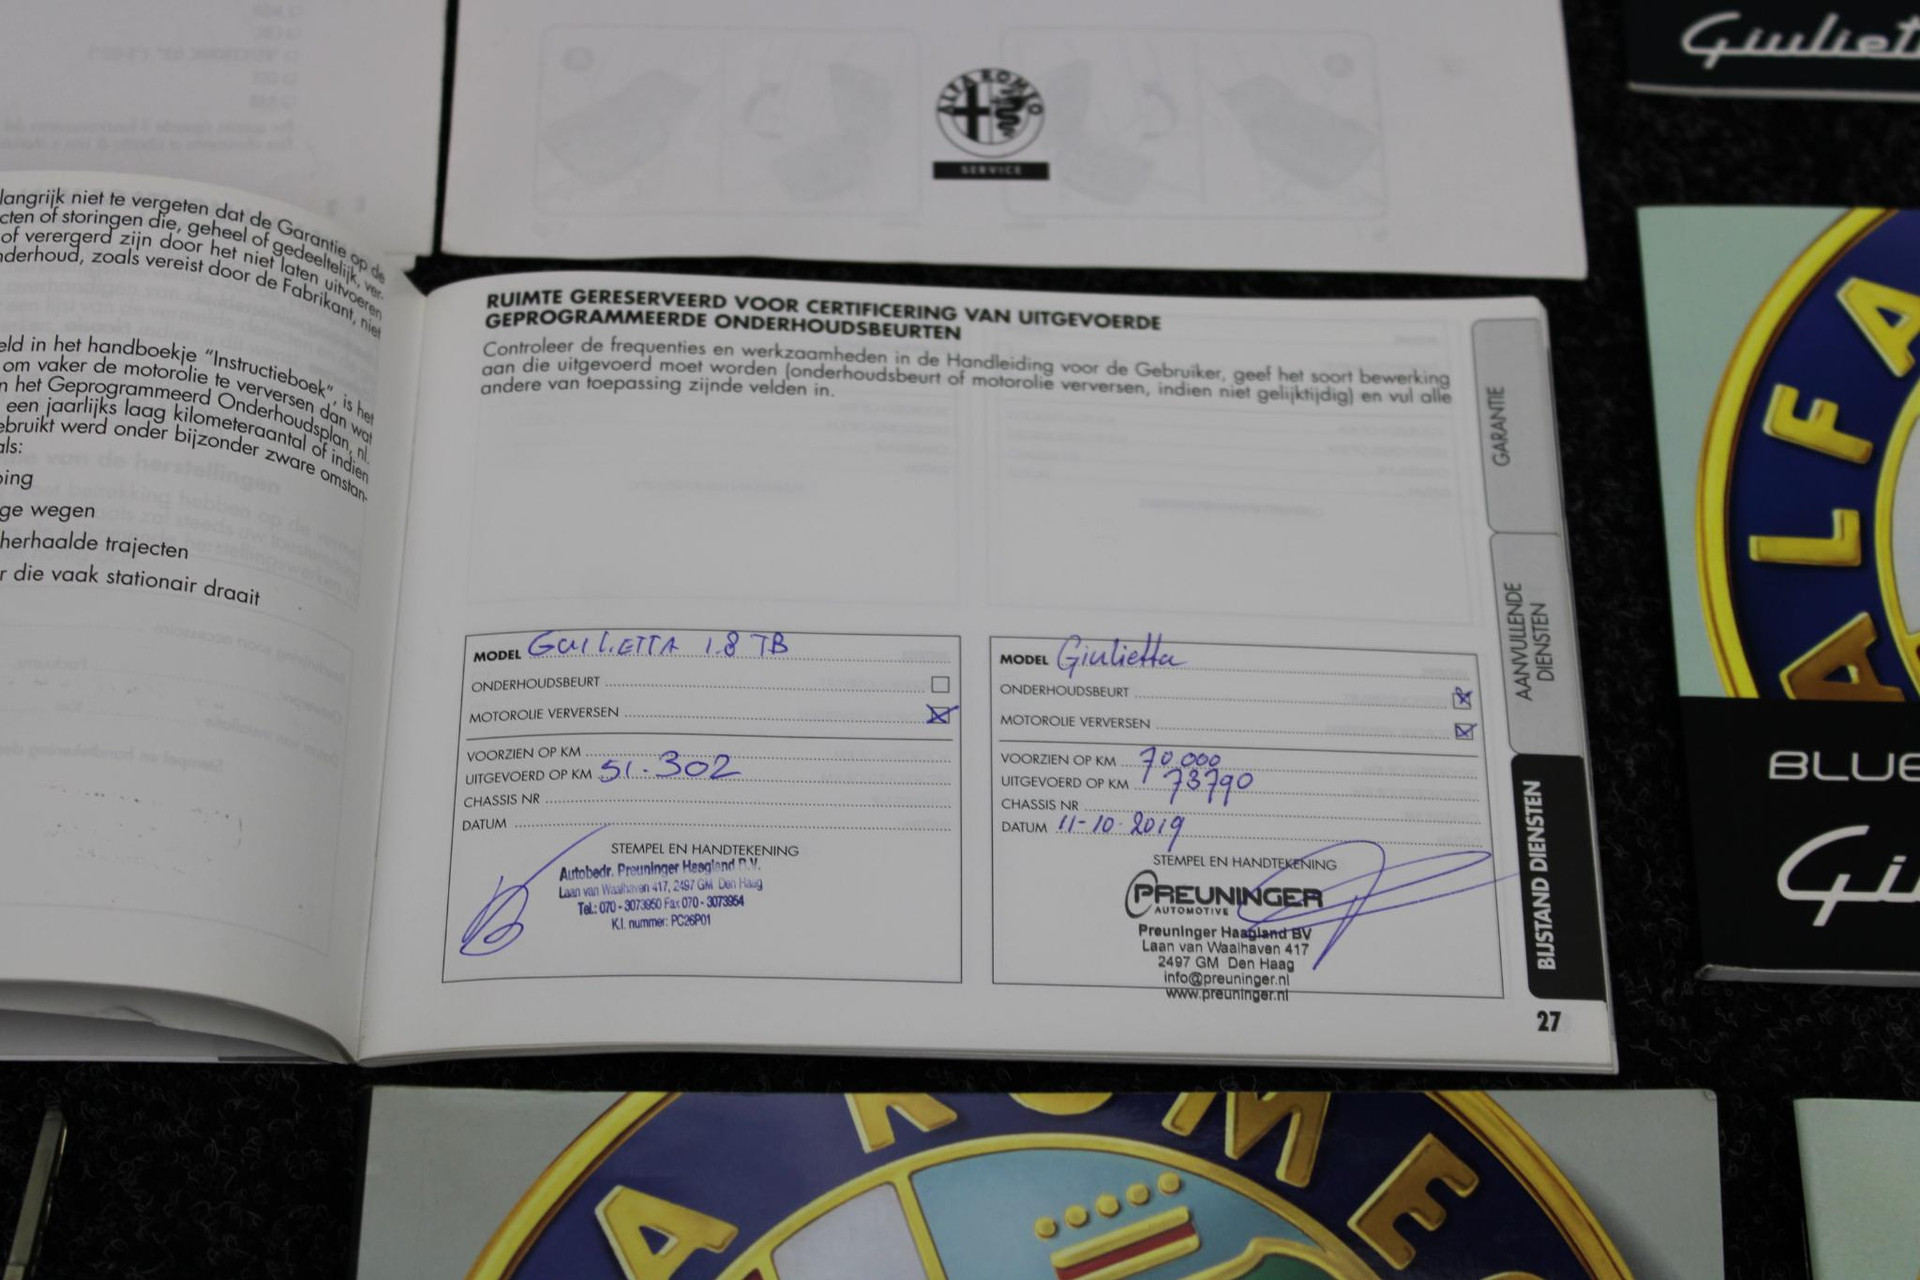 ALFA ROMEO
SERVICE
Giuliet
langrijk niet te vergeten dat de Garantie op de
cten of storingen die, geheel of gedeeltelijk, ver-
of verergerd zijn door het niet laten uitvoeren
nderhoud, zoals vereist door de Fabrikant, niet
eld in het handboekje "Instructieboek", is het
om vaker de motorolie te verversen dan wat
n het Geprogrammeerd Onderhoudsplan, nl.
een jaarlijks laag kilometeraantal of indien
ebruikt werd onder bijzonder zware omstan-
als:
ping
ge wegen
herhaalde trajecten
r die vaak stationair draait
RUIMTE GERESERVEERD VOOR CERTIFICERING VAN UITGEVOERDE
GEPROGRAMMEERDE ONDERHOUDSBEURTEN
Controleer de frequenties en werkzaamheden in de Handleiding voor de Gebruiker, geef het soort bewerking
aan die uitgevoerd moet worden (onderhoudsbeurt of motorolie verversen, indien niet gelijktijdig) en vul alle
andere van toepassing zijnde velden in.
MODEL GUILIETTA 1.8 TB
ONDERHOUDSBEURT
MOTOROLIE VERVERSEN
VOORZIEN OP KM
UITGEVOERD OP KM 51.302
CHASSIS NR
DATUM
STEMPEL EN HANDTEKENING
Autobedr. Preuninger Haagland B.V.
Laan van Waalhaven 417, 2497 GM Den Haag
Tel.: 070 - 3073950 Fax 070 - 3073954
K.I. nummer: PC26P01
MODEL Giulietta
ONDERHOUDSBEURT
MOTOROLIE VERVERSEN
VOORZIEN OP KM 70.000
UITGEVOERD OP KM 73790
CHASSIS NR
DATUM 11-10-2019
STEMPEL EN HANDTEKENING
PREUNINGER
AUTOMOTIVE
Preuninger Haagland BV
Laan van Waalhaven 417
2497 GM Den Haag
info@preuninger.nl
www.preuninger.nl
GARANTIE
AANVULLENDE
DIENSTEN
BIJSTAND DIENSTEN
27
ALFA
BLUE
Giu
A ROME